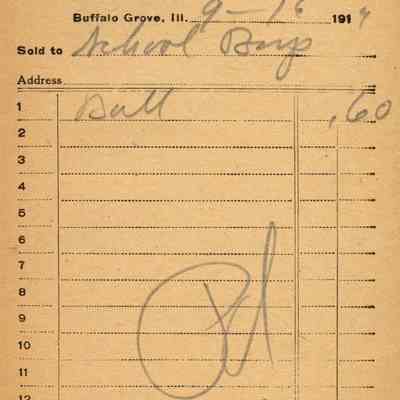 Buffalo Grove, Ill. 9-16 191
Sold to School Boys
Address
1 Ball .60
2
3
4
5
6
7
8
9
10
11
12
Pd